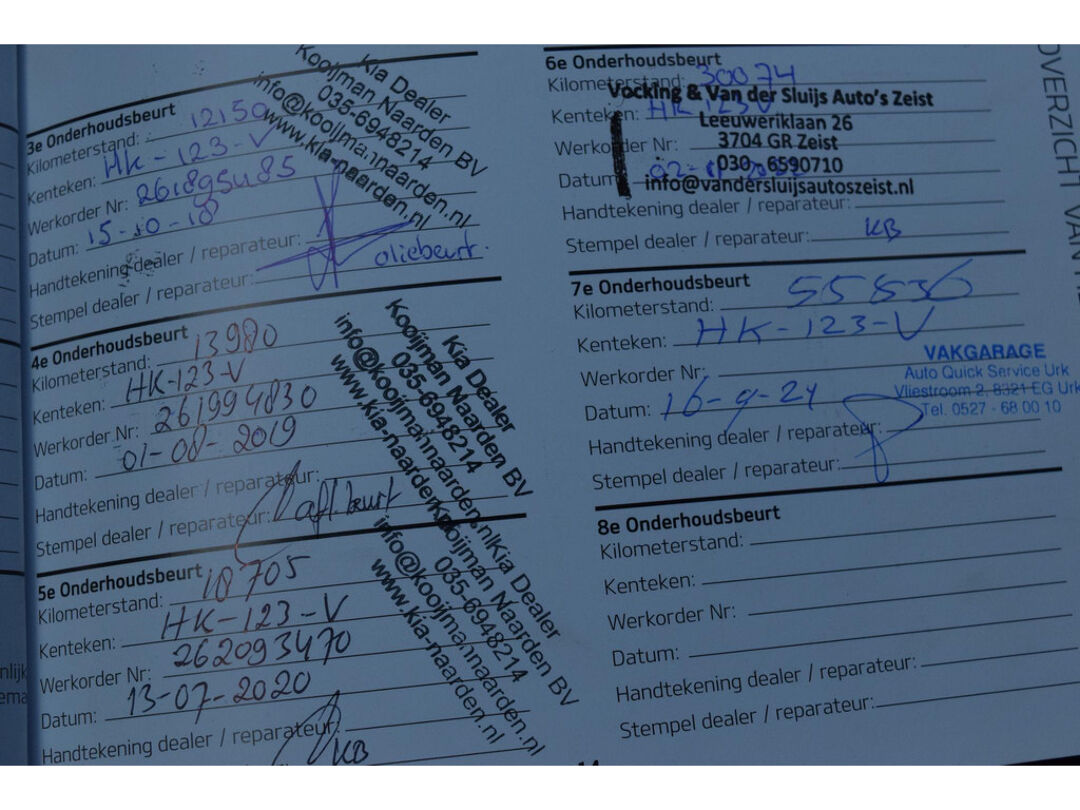 3e Onderhoudsbeurt
Kilometerstand: 12150
Kenteken: HK-123-V
Werkorder Nr: 261895485
Datum: 15-10-18
Handtekening dealer / reparateur:
Stempel dealer / reparateur: oliebeurt.
Kia Dealer
Kooijman Naarden BV
035-6948214
info@kooijmannaarden.nl
www.kia-naarden.nl
4e Onderhoudsbeurt
Kilometerstand: 13980
Kenteken: HK-123-V
Werkorder Nr: 261994830
Datum: 01-08-2019
Handtekening dealer / reparateur:
Stempel dealer / reparateur: afl.beurt
Kia Dealer
Kooijman Naarden BV
035-6948214
info@kooijmannaarden.nl
www.kia-naarden.nl
5e Onderhoudsbeurt
Kilometerstand: 18705
Kenteken: HK-123-V
Werkorder Nr: 262093470
Datum: 13-07-2020
Handtekening dealer / reparateur:
KB
Kia Dealer
Kooijman Naarden BV
035-6948214
info@kooijmannaarden.nl
www.kia-naarden.nl
6e Onderhoudsbeurt
Kilometerstand: 30074
Kenteken: HK-123V
Werkorder Nr:
Datum:
Handtekening dealer / reparateur:
Stempel dealer / reparateur: KB
Vocking & Van der Sluijs Auto's Zeist
Leeuweriklaan 26
3704 GR Zeist
030-6590710
info@vandersluijsautoszeist.nl
7e Onderhoudsbeurt
Kilometerstand: 55836
Kenteken: HK-123-V
Werkorder Nr:
Datum: 16-9-24
Handtekening dealer / reparateur:
Stempel dealer / reparateur:
VAKGARAGE
Auto Quick Service Urk
Vliestroom 2, 8321 EG Urk
Tel. 0527 - 68 00 10
8e Onderhoudsbeurt
Kilometerstand:
Kenteken:
Werkorder Nr:
Datum:
Handtekening dealer / reparateur:
Stempel dealer / reparateur:
OVERZICHT VAN